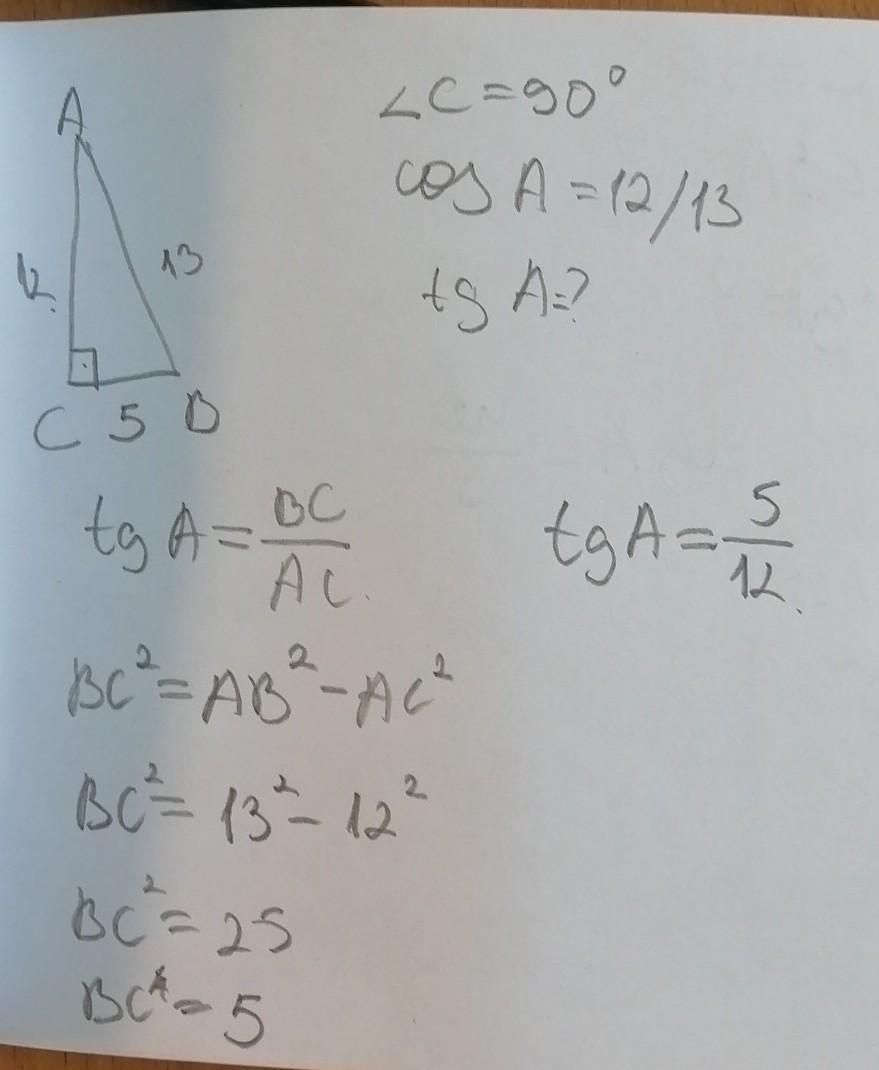 A
12
13
C 5 B
∠C=90°
cos A=12/13
tg A=?
tg A=BC/AC
tg A=5/12
BC²=AB²-AC²
BC²=13²-12²
BC²=25
BC=5